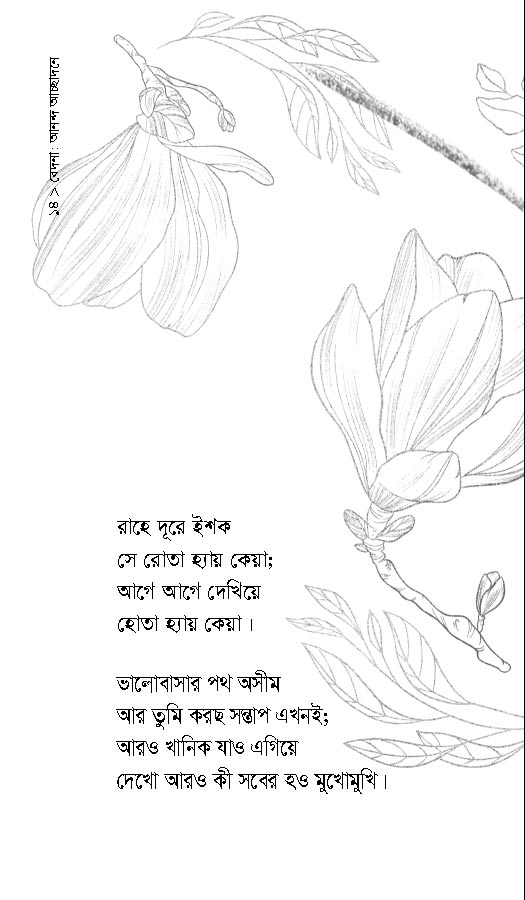 ১৪ > বেদনা: আনন্দ আচ্ছাদনে
রাহে দূরে ইশক
সে রোতা হ্যায় কেয়া;
আগে আগে দেখিয়ে
হোতা হ্যায় কেয়া।
ভালোবাসার পথ অসীম
আর তুমি করছ সন্তাপ এখনই;
আরও খানিক যাও এগিয়ে
দেখো আরও কী সবের হও মুখোমুখি।